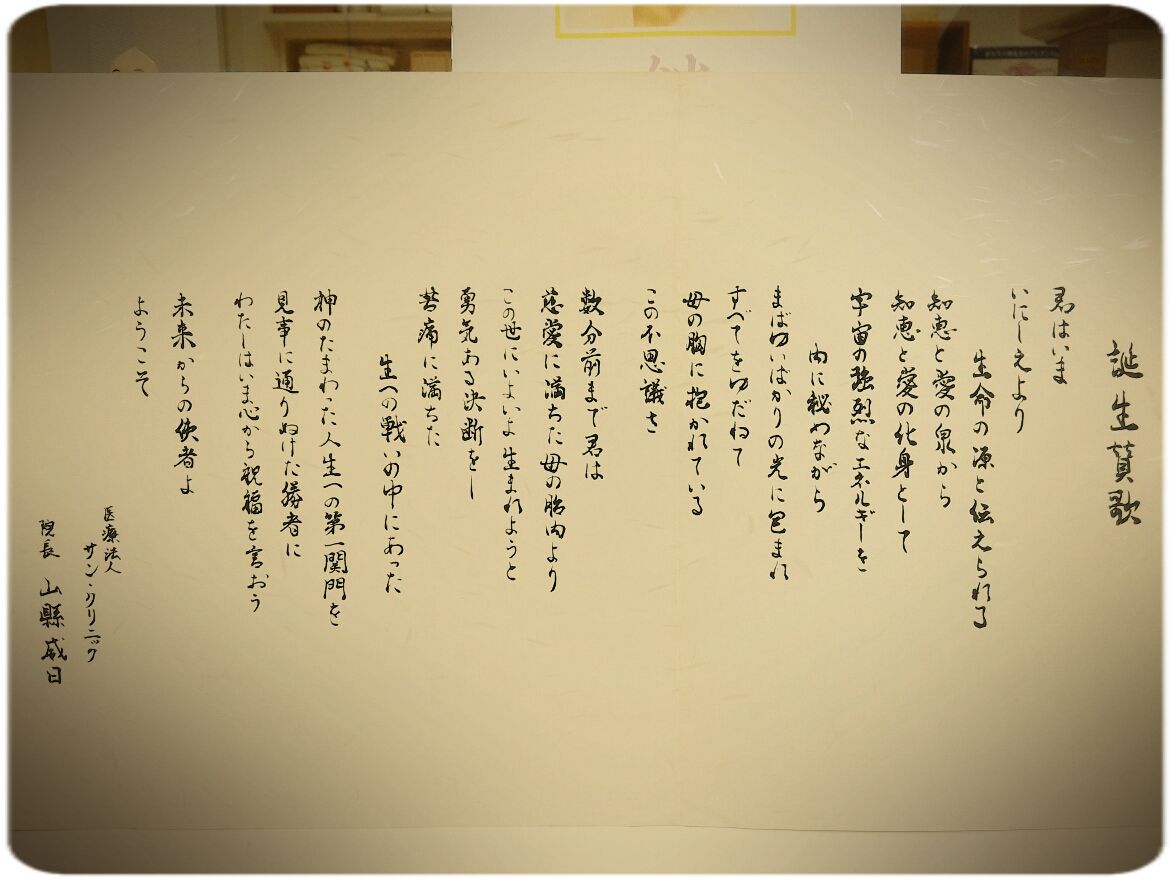 誕生賛歌
君はいま
いにしえより
生命の源と伝えられる
知恵と愛の泉から
知恵と愛の化身として
宇宙の強烈なエネルギーを
内に秘めながら
まばゆいばかりの光に包まれ
すべてをゆだねて
母の胸に抱かれている
この不思議さ
数分前まで君は
慈愛に満ちた母の胎内より
この世にいよいよ生まれようと
勇気ある決断をし
苦痛に満ちた
生への戦いの中にあった
神のたまわった人生への第一関門を
見事に通りぬけた勝者に
わたしはいま心から祝福を言おう
未来からの使者よ
ようこそ
医療法人
サン・クリニック
院長 山縣威日